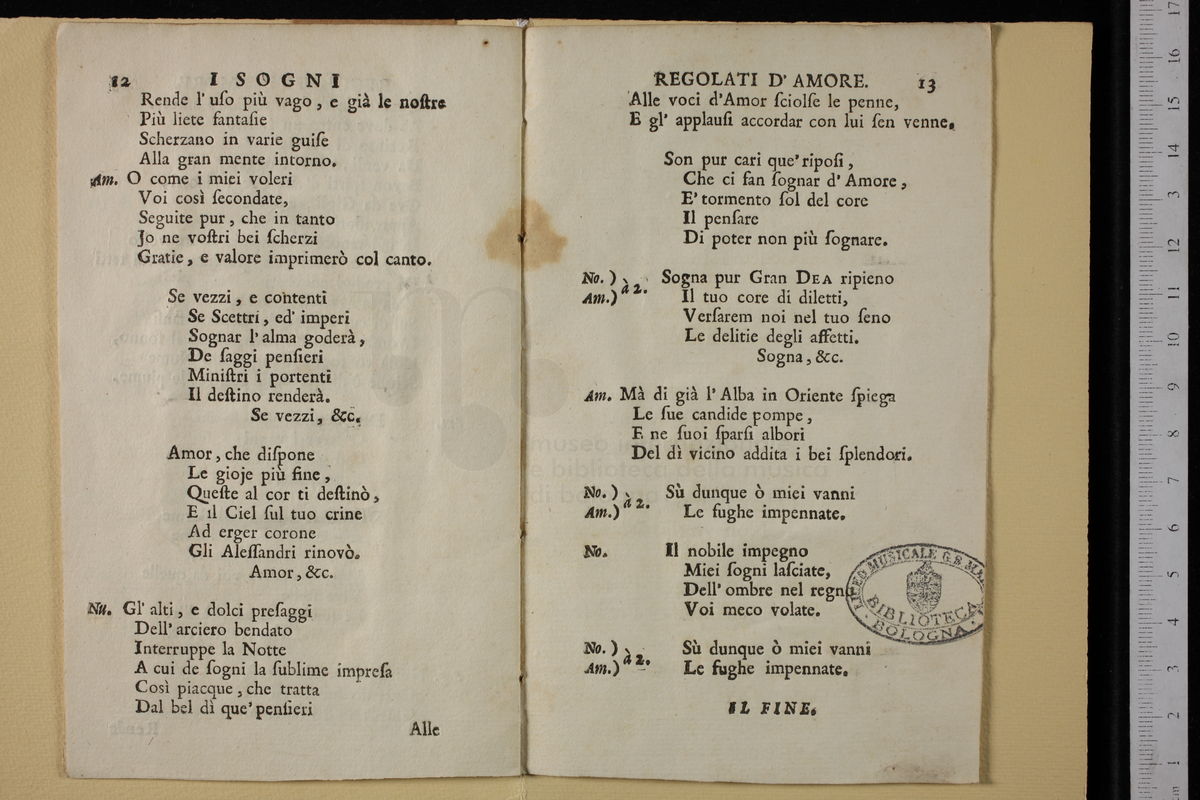 12 I SOGNI
Rende l' uſo più vago, e già le noſtre
Più liete fantaſie
Scherzano in varie guiſe
Alla gran mente intorno.
Am. O come i miei voleri
Voi così ſecondate,
Seguite pur, che in tanto
Jo ne voſtri bei ſcherzi
Gratie, e valore imprimerò col canto.
Se vezzi, e contenti
Se Scettri, ed' imperi
Sognar l' alma goderà,
De ſaggi penſieri
Miniſtri i portenti
Il deſtino renderà.
Se vezzi, &c.
Amor, che diſpone
Le gioje più fine,
Queſte al cor ti deſtinò,
E il Ciel ſul tuo crine
Ad erger corone
Gli Aleſſandri rinovò.
Amor, &c.
Nu. Gl' alti, e dolci preſaggi
Dell' arciero bendato
Interruppe la Notte
A cui de ſogni la ſublime impreſa
Così piacque, che tratta
Dal bel dì que' penſieri
Alle
REGOLATI D' AMORE. 13
Alle voci d'Amor ſciolſe le penne,
E gl' applauſi accordar con lui ſen venne.
Son pur cari que' ripoſi,
Che ci fan ſognar d' Amore,
E' tormento ſol del core
Il penſare
Di poter non più ſognare.
No. ) à 2. Sogna pur Gran DEA ripieno
Am.) Il tuo core di diletti,
Verſarem noi nel tuo ſeno
Le delitie degli affetti.
Sogna, &c.
Am. Mà di già l' Alba in Oriente ſpiega
Le ſue candide pompe,
E ne ſuoi ſparſi albori
Del dì vicino addita i bei ſplendori.
No. ) à 2. Sù dunque ò miei vanni
Am.) Le fughe impennate.
No. Il nobile impegno
Miei ſogni laſciate,
Dell' ombre nel regno
Voi meco volate.
No. ) à 2. Sù dunque ò miei vanni
Am.) Le fughe impennate.
IL FINE.
LICEO MUSICALE G. B. MA
BIBLIOTECA
BOLOGNA
museo
e biblioteca della musica
di bo